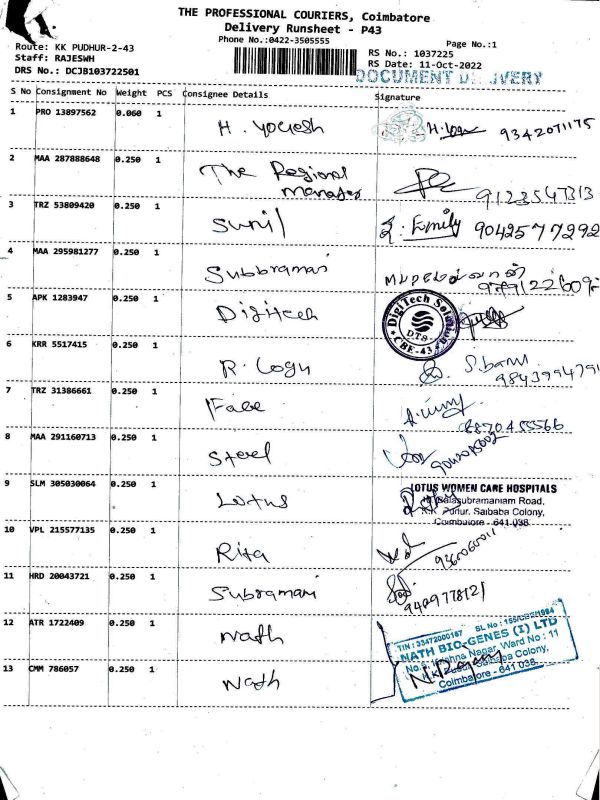 THE PROFESSIONAL COURIERS, Coimbatore
Delivery Runsheet - P43
Phone No.:0422-3505555
Page No.:1
Route: KK PUDHUR-2-43
Staff: RAJESWH
DRS No.: DCJB103722501
RS No.: 1037225
RS Date: 11-Oct-2022
DOCUMENT DELIVERY
S No Consignment No Weight PCS Consignee Details Signature
1 PRO 13897562 0.060 1 H. Yogesh 9342071175
2 MAA 287888648 0.250 1 The Regional manager 9123547313
3 TRZ 53809420 0.250 1 Sunil Emily 9042577292
4 MAA 295981277 0.250 1 Subbramani
5 APK 1283947 0.250 1 Digitech DigiTech Solu DTS CBE-43
6 KRR 5517415 0.250 1 R. Logu S. banu
7 TRZ 31386661 0.250 1 Fabe 8870455566
8 MAA 291160713 0.250 1 Steel
9 SLM 305030064 0.250 1 Lotus LOTUS WOMEN CARE HOSPITALS
Balasubramaniam Road,
K.K. Pudur, Saibaba Colony,
Coimbatore - 641 038.
10 VPL 215577135 0.250 1 Rita
11 HRD 20043721 0.250 1 Subramani
12 ATR 1722409 0.250 1 Nath
TIN : 33472000187 SL No : 155/CBE/1994
NATH BIO-GENES (I) LTD
Krishna Nagar, Ward No : 11
Saibaba Colony,
Coimbatore - 641 038.
13 CMM 786057 0.250 1 Nath